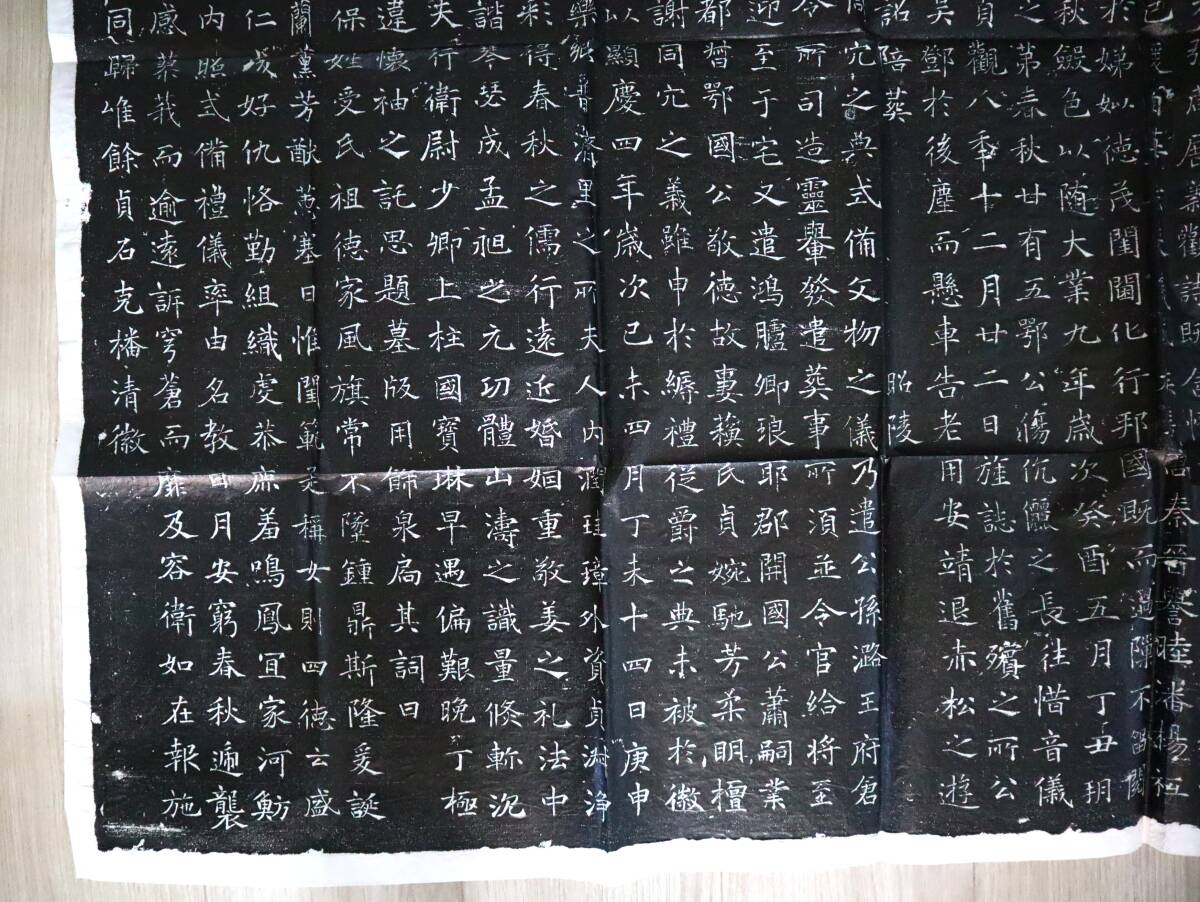 秦晉譽睦潘楊
於娣姒德茂閨闈化行邦國既而過隙不留閱
秋色以隨大業九年歲次癸酉五月丁丑朔
之第春秋廿有五鄂公傷伉儷之長往惜音儀
貞觀八年十二月廿二日旌誌於舊殯之所公
吳鄧於後塵而懸車告老用安靖退赤松之遊
詔陪葬 昭陵
同穴之典式備文物之儀乃遣公孫潞王府倉
令所司造靈轝發遣葬事所須並令官給將至
迎至于宅又遣鴻臚卿琅耶郡開國公蕭嗣業
都督鄂國公敬德故妻蘇氏貞婉馳芳柔明檀
謝同穴之義雖申於縟禮從爵之典未被於徽
以顯慶四年歲次己未四月丁未十四日庚申
樂普濟里之所夫人內潤珪璋外資貞淑浄
彩得春秋之儒行遠近婚姻重敬姜之礼法中
諧琴瑟成孟昶之元功體山濤之識量沉
失行衛尉少卿上柱國寶琳早遇偏艱晚丁極
違懷袖之託思題墓版用飾泉扃其詞曰
保姓受氏祖德家風旗常不墜鍾鼎斯隆爰誕
蘭薰芳猷塞日惟閨範是稱女則四德云盛
仁爰好仇恪勤組織虔恭庶羞鳴鳳宜家河魴
內照式備禮儀率由名教日月安窮春秋遞襲
感慕哉而逾遠訴穹蒼而靡及容衛如在報施
同歸唯餘貞石克播清徽